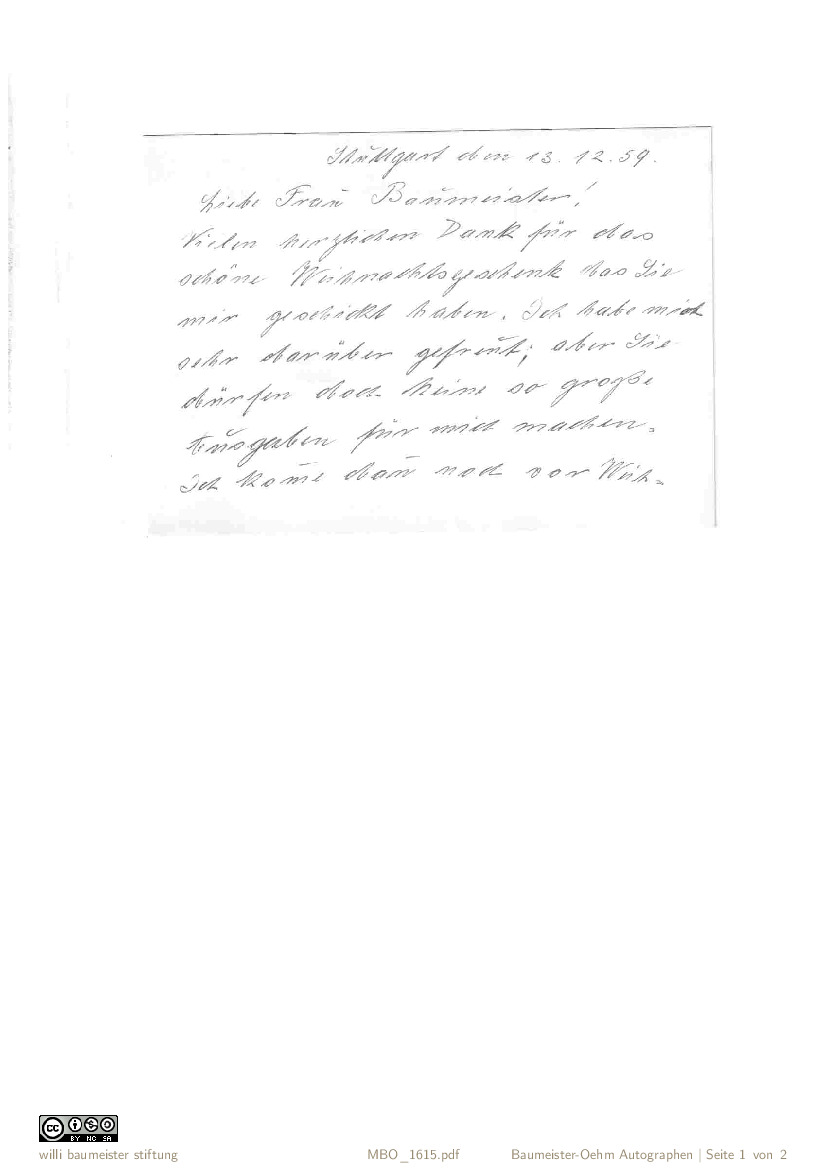 Stuttgart den 13. 12. 59.
Liebe Frau Baumeister!
Vielen herzlichen Dank für das
schöne Weihnachtsgeschenk das Sie
mir geschickt haben. Ich habe mich
sehr darüber gefreut; aber Sie
dürfen doch keine so große
Ausgaben für mich machen.
Ich kom̄e dan̄ noch vor Weih=
cc BY NC SA
willi baumeister stiftung MBO_1615.pdf Baumeister-Oehm Autographen | Seite 1 von 2